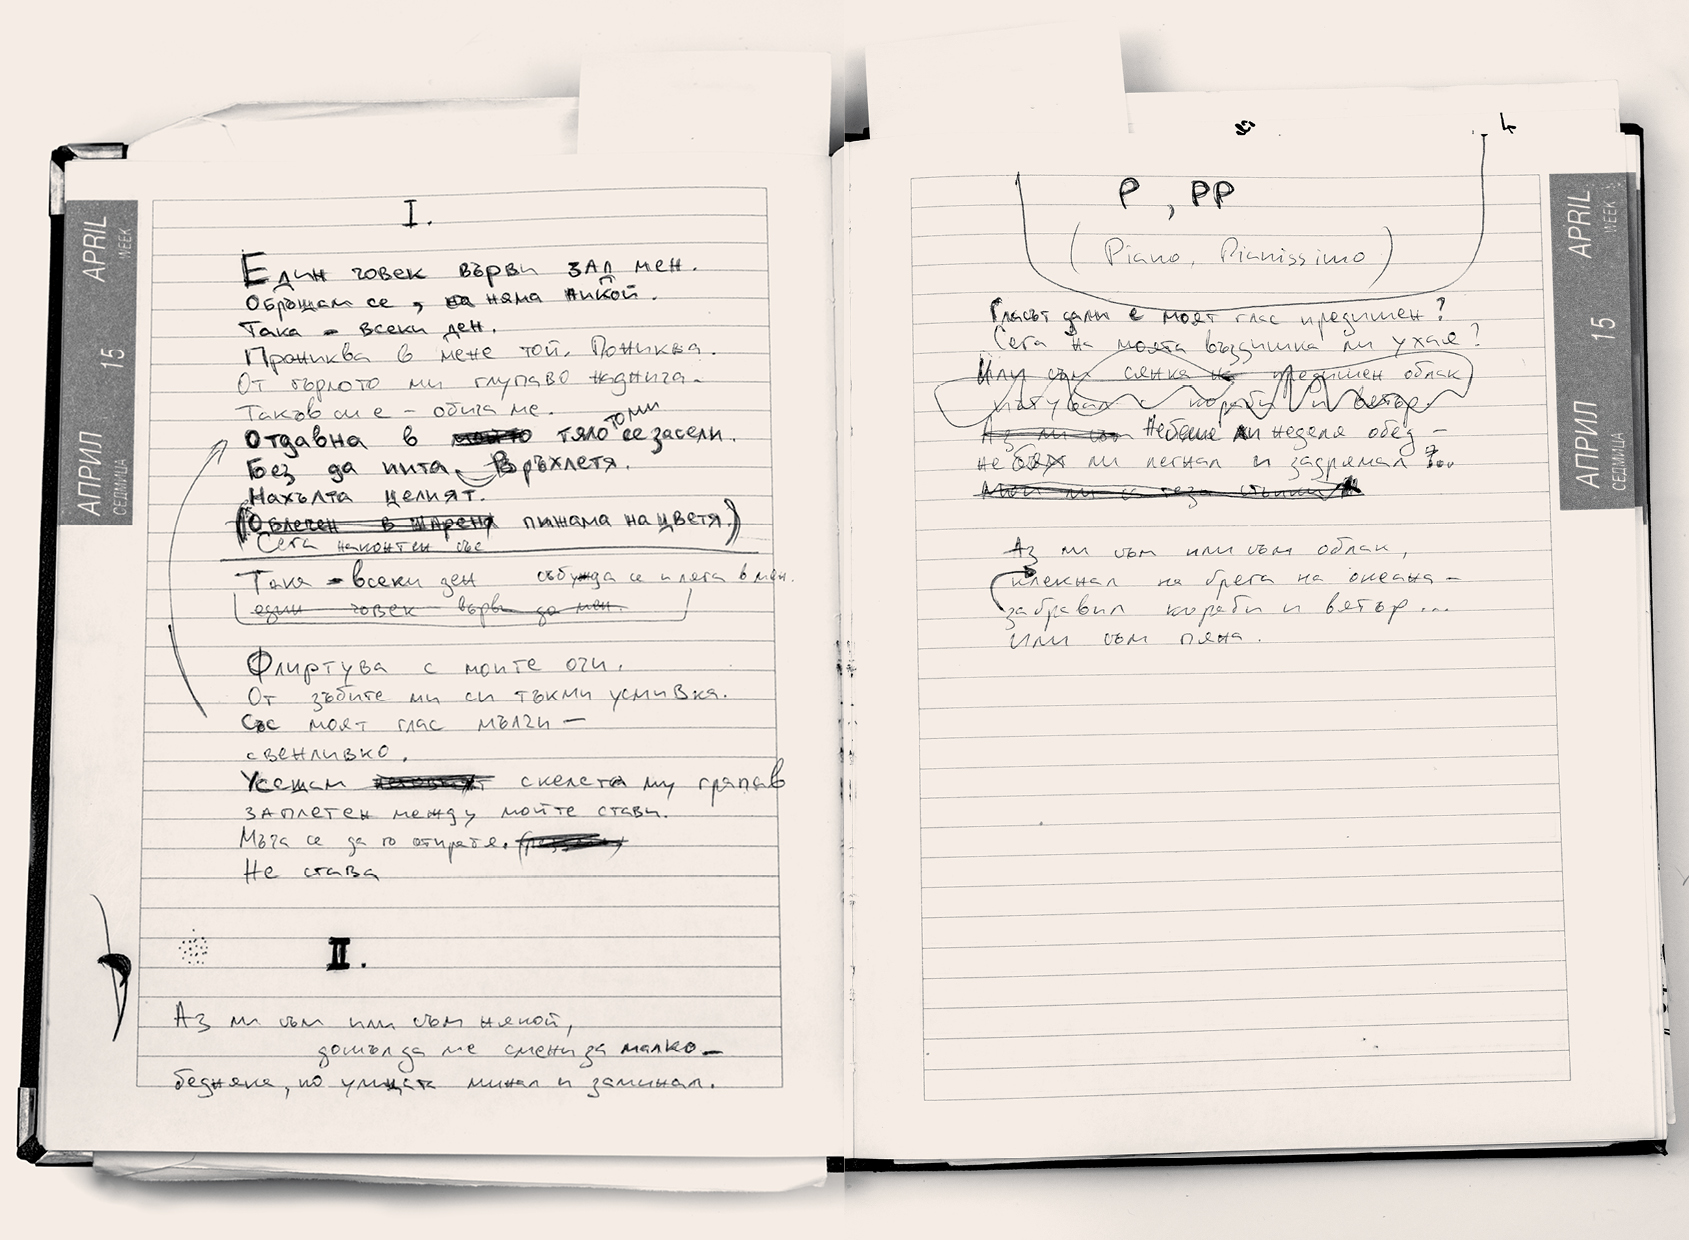 APRIL 15 WEEK
АПРИЛ СЕДМИЦА
I.
Един човек върви зад мен.
Обръщам се, на няма никой.
Така - всеки ден.
Прониква в мене той. Пониква.
От гърлото ми глупаво наднича.
Такъв си е - обича ме.
Отдавна в моето тяло то ми се засели.
Без да пита. Връхлетя.
Нахълта целият.
(Облечен в шарена пижама на цветя.)
Сега наконтен със
Така - всеки ден събужда се и ляга в мен.
един човек върви до мен.
Флиртува с моите очи.
От зъбите ми си тъкми усмивка.
Със моят глас мълчи —
свенливко.
Усещам скелета му грапав
заплетен между моите стави.
Мъча се да го отпратя.
Не става
II.
Аз ли съм или съм някой,
дошъл да ме смени за малко —
бедняка, по улицата минал и заминал.
APRIL 15 WEEK
АПРИЛ СЕДМИЦА
P, PP
(Piano, Pianissimo)
Гласът дали е моят глас предишен?
Сега на моята въздишка ли ухая?
Или съм сянка на предишен облак
пътувал с кораби и вятър
Аз ли съм Небеше ли неделя обед —
не бях ли легнал и задрямал ?..
Мои ли са тези стъпки
Аз ли съм или съм облак,
клекнал на брега на океана —
забравил кораби и вятър...
Или съм пяна.